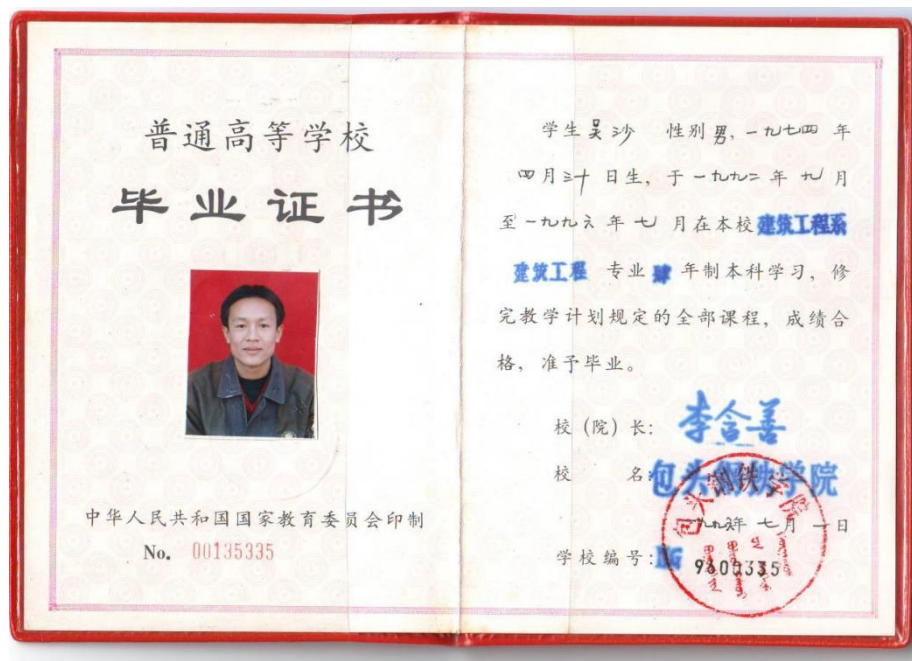 普通高等学校
毕业证书
中华人民共和国国家教育委员会印制
No. 00135335
学生吴沙 性别男,一九七四年
四月三十日生,于一九九二年九月
至一九九六年七月在本校建筑工程系
建筑工程 专业肆年制本科学习,修
完教学计划规定的全部课程,成绩合
格,准予毕业。
校(院)长:李含善
校 名:包头钢铁学院
一九九六年七月一日
学校编号: 9600335
包头钢铁学院